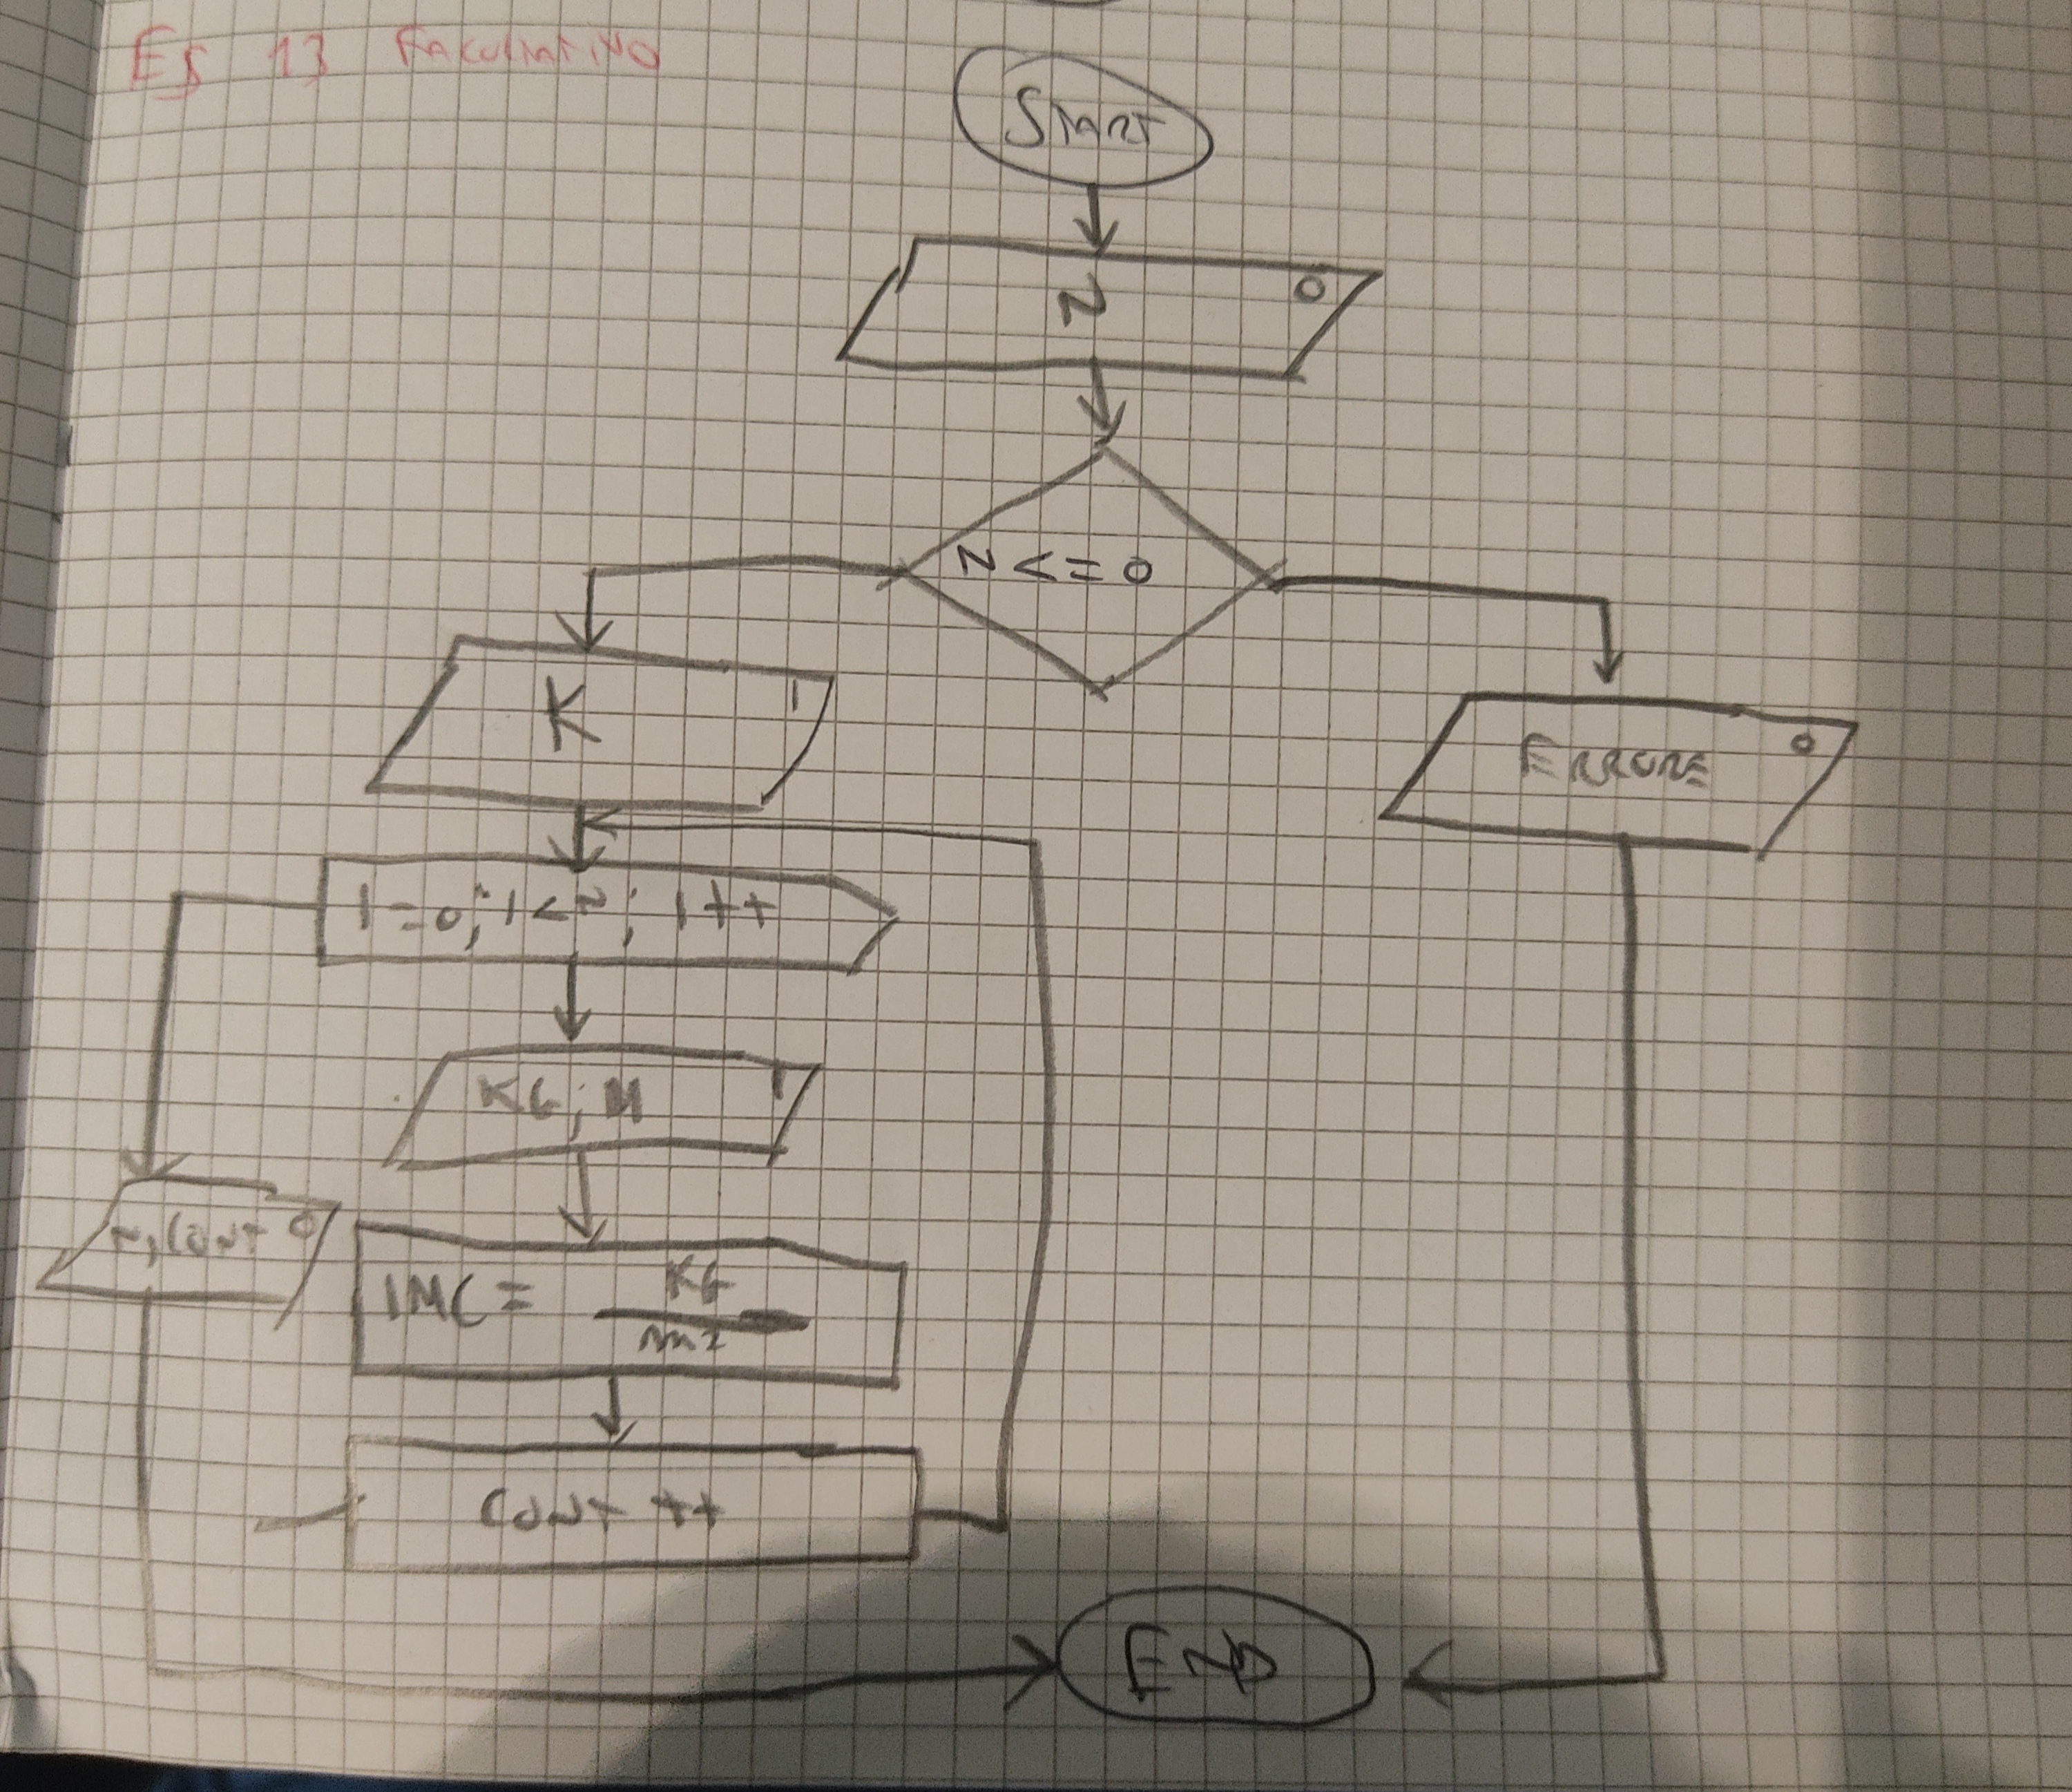 Es 13 FACOLTATIVO
START
N O
N <= 0
K I
ERRORE O
I = 0; I < N; I ++
KG; M I
N, CONT O
IMC = KG
m2
CONT ++
END